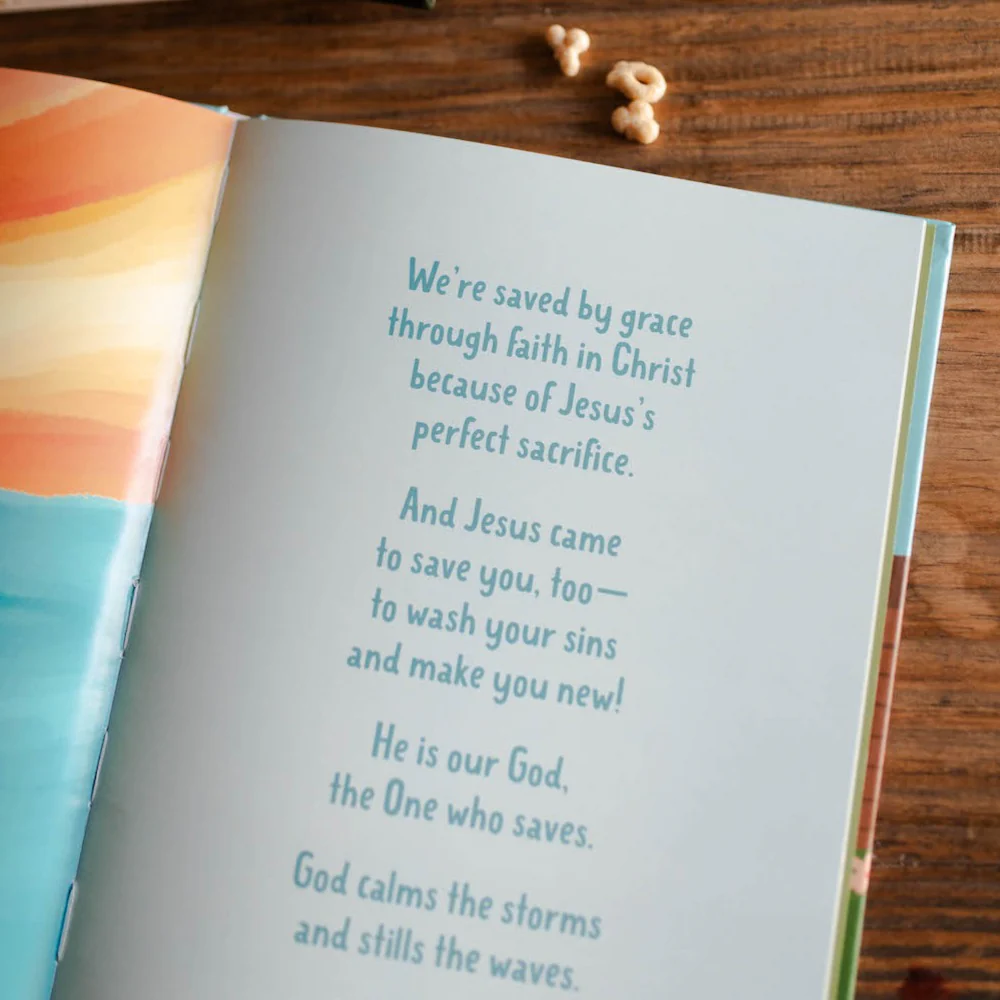 We're saved by grace
through faith in Christ
because of Jesus's
perfect sacrifice.
And Jesus came
to save you, too—
to wash your sins
and make you new!
He is our God,
the One who saves.
God calms the storms
and stills the waves.